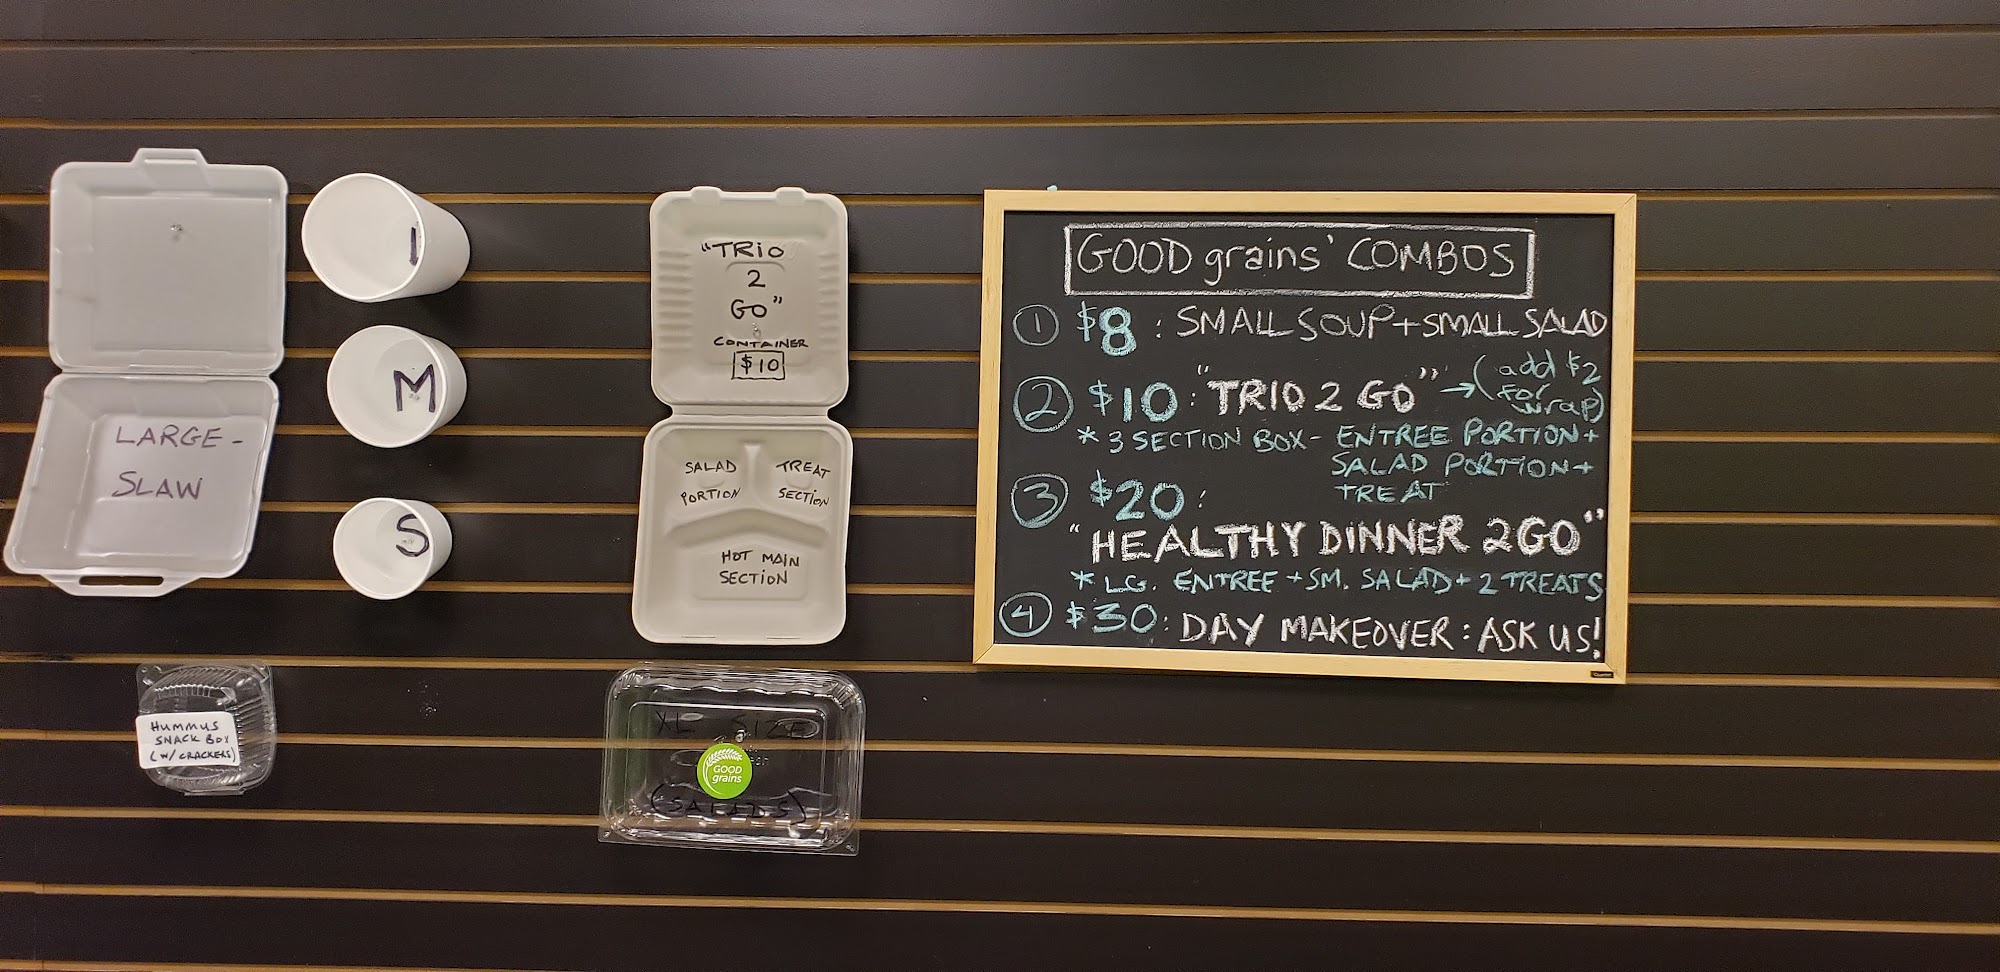 LARGE-
SLAW
M
S
"TRIO
2
GO"
CONTAINER
$10
SALAD
PORTION
TREAT
SECTION
HOT MAIN
SECTION
HUMMUS
SNACK BOX
(W/ CRACKERS)
XL SIZE
GOOD
grains
(SALADS)
GOOD grains' COMBOS
1 $8: SMALL SOUP + SMALL SALAD
2 $10: "TRIO 2 GO" → (add $2
for
wrap)
* 3 SECTION BOX - ENTREE PORTION +
SALAD PORTION +
TREAT
3 $20:
"HEALTHY DINNER 2GO"
* LG. ENTREE + SM. SALAD + 2 TREATS
4 $30: DAY MAKEOVER: ASK US!